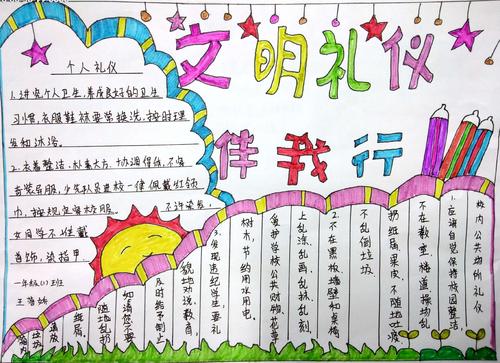 文明礼仪
伴我行
个人礼仪
1.讲究个人卫生,养成良好的卫生
习惯,衣服鞋袜要常换洗,按时理
发和沐浴。
2.衣着整洁、朴素大方、协调得体,不穿
奇装异服,少先队员进校一律佩戴红领
巾,按规定穿校服。不许染发,
女同学不得戴
首饰,染指甲。
一年级(1)班
校内公共场所礼仪
1.应该自觉保持校园整洁
不在教室、楼道、操场乱
扔纸屑、果皮、不随地吐痰
不乱倒垃圾
2.不在黑板、墙壁和桌椅
上乱涂、乱画、乱抹、乱刻
爱护学校公共财物、花草
树木,节约用水用电。
3.发现违纪学生要礼
貌地劝说教育,
及时给予制止
如请您不要
随地乱扔
纸屑